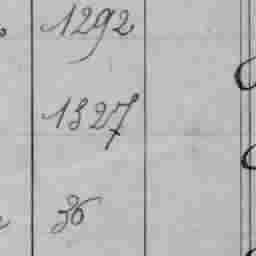 1292
1327
36